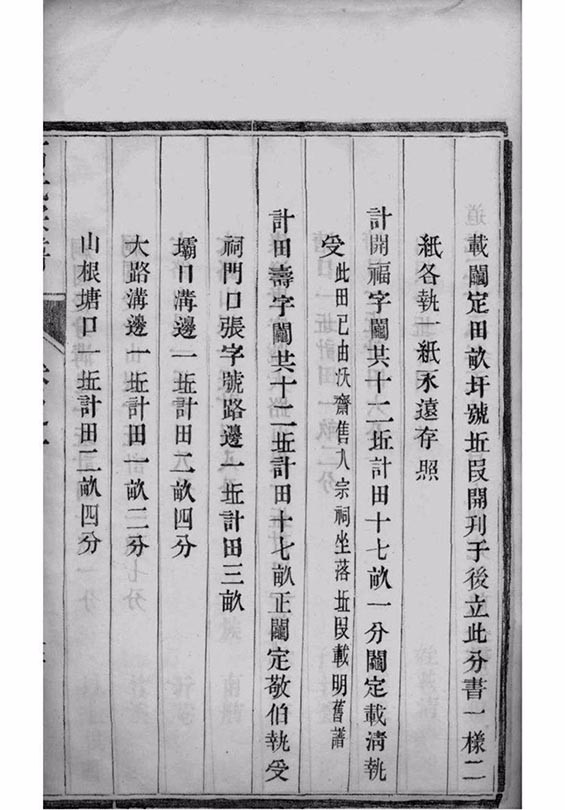 載鬮定田畝圩號坵段開列于後立此分書一樣二
紙各執一紙永遠存照
計開福字鬮共十二坵計田十七畝一分鬮定載清執
受此田已由沃齋售入宗祠坐落坵段載明舊譜
計田壽字鬮共十二坵計田十七畝正鬮定敬伯執受
祠門口張字號路邊一坵計田三畝
壩口溝邊一坵計田二畝四分
大路溝邊一坵計田一畝二分
山根塘口一坵計田二畝四分